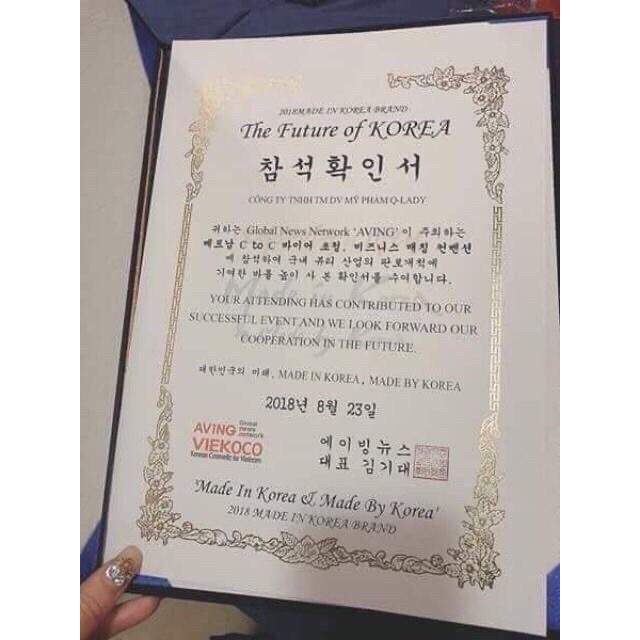 2018MADE IN KOREA BRAND
The Future of KOREA
참석확인서
CÔNG TY TNHH TM DV MỸ PHẨM Q-LADY
귀하는 Global News Network 'AVING'이 주최하는
베트남 C to C 바이어 초청, 비즈니스 매칭 컨벤션
에 참석하여 국내 뷰티 산업의 판로개척에
기여한 바를 높이 사 본 확인서를 수여합니다.
Made in Korea
YOUR ATTENDING HAS CONTRIBUTED TO OUR
SUCCESSFUL EVENT AND WE LOOK FORWARD OUR
COOPERATION IN THE FUTURE.
대한민국의 미래, MADE IN KOREA, MADE BY KOREA
2018년 8월 23일
AVING Global news network
VIEKOCO
Korean Cosmetic for Vietnam
에이빙뉴스
대표 김기대
'Made In Korea & Made By Korea'
2018 MADE IN KOREA BRAND